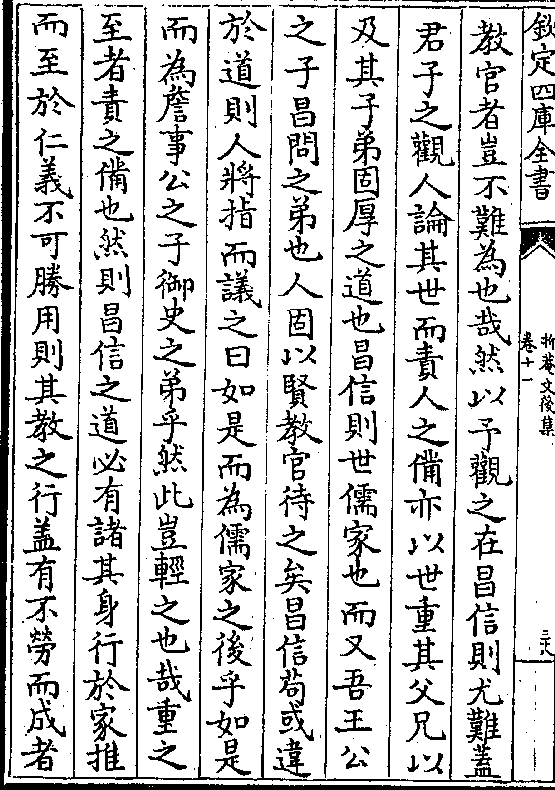 欽定四庫全書
卷十一
教官者豈不難為也哉然以予觀之在昌信則尤難蓋
君子之觀人論其世而責人之備亦以世重其父兄以
及其子弟固厚之道也昌信則世儒家也而又吾王公
之子昌問之弟也人固以賢教官待之矣昌信苟或違
於道則人將指而議之曰如是而為儒家之後乎如是
而為詹事公之子御史之弟乎然此豈輕之也哉重之
至者責之備也然則昌信之道必有諸其身行於家推
而至於仁義不可勝用則其教之行盖有不勞而成者